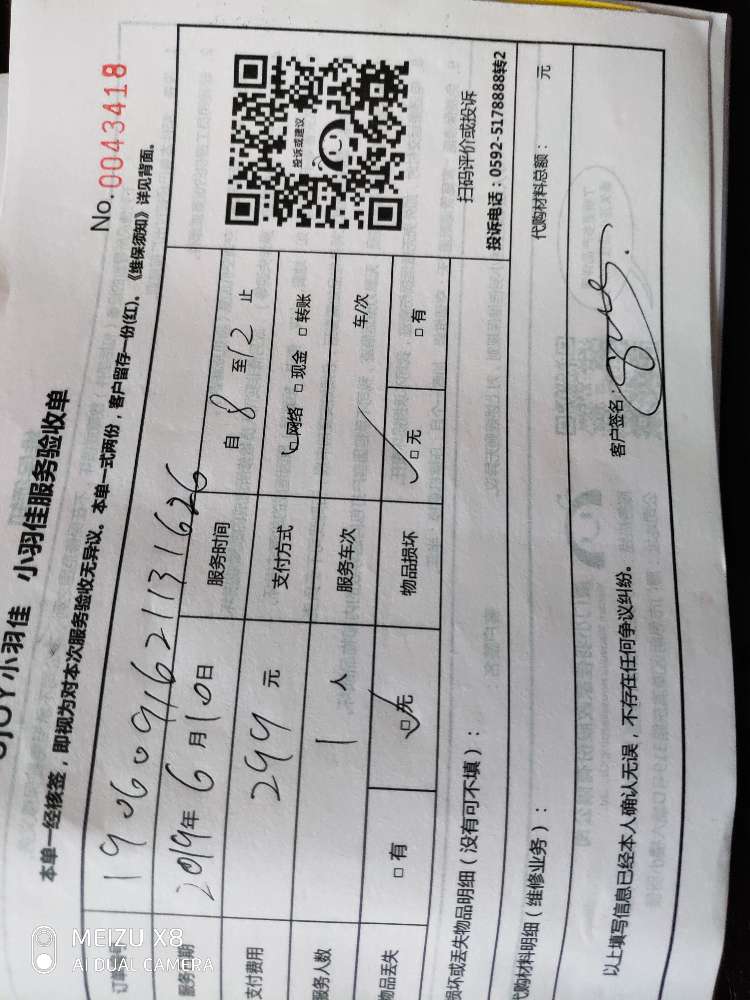 No.0043418
小羽佳 小羽佳服务验收单
本单一经核签，即视为对本次服务验收无异议。本单一式两份，客户留存一份(红)。《维保须知》详见背面。
1906091621131626
2019年6月10日 服务时间 自8至12止
支付费用 299元 支付方式 □网络 □现金 □转账
服务人数 1人 服务车次 车/次
物品丢失 □有 □无 物品损坏 □无 □有
投诉或建议
扫码评价或投诉
投诉电话：0592-5178888转2
损坏或丢失物品明细（没有可不填）：
代购材料明细（维修业务）： 代购材料总额： 元
以上填写信息已经本人确认无误，不存在任何争议纠纷。 客户签名：
MEIZU X8
AI DUAL CAMERA